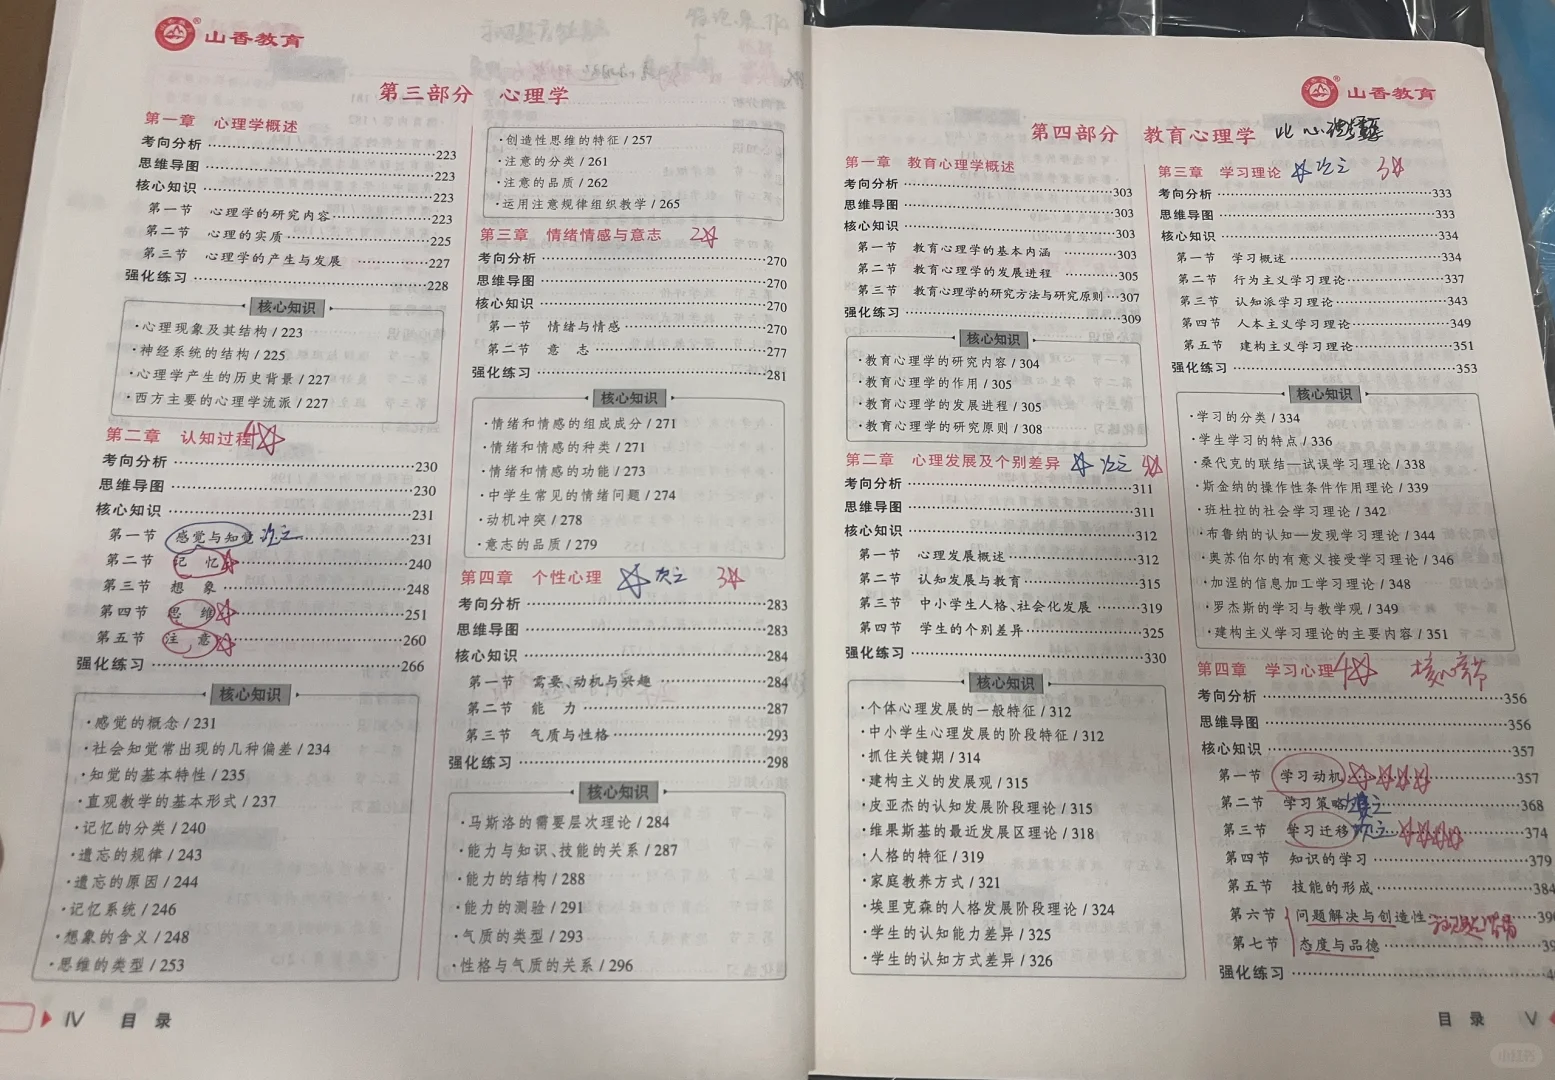 山香教育
第三部分 心理学
第一章 心理学概述
考向分析 223
思维导图 223
核心知识 223
第一节 心理学的研究内容 223
第二节 心理的实质 225
第三节 心理学的产生与发展 227
强化练习 228
核心知识
·心理现象及其结构 / 223
·神经系统的结构 / 225
·心理学产生的历史背景 / 227
·西方主要的心理学流派 / 227
第二章 认知过程 4☆
考向分析 230
思维导图 230
核心知识 231
第一节 感觉与知觉 次之 231
第二节 记忆☆ 240
第三节 想象 248
第四节 思维☆ 251
第五节 注意☆ 260
强化练习 266
核心知识
·感觉的概念 / 231
·社会知觉常出现的几种偏差 / 234
·知觉的基本特性 / 235
·直观教学的基本形式 / 237
·记忆的分类 / 240
·遗忘的规律 / 243
·遗忘的原因 / 244
·记忆系统 / 246
·想象的含义 / 248
·思维的类型 / 253
·创造性思维的特征 / 257
·注意的分类 / 261
·注意的品质 / 262
·运用注意规律组织教学 / 265
第三章 情绪情感与意志 2☆
考向分析 270
思维导图 270
核心知识 270
第一节 情绪与情感 270
第二节 意志 277
强化练习 281
核心知识
·情绪和情感的组成成分 / 271
·情绪和情感的种类 / 271
·情绪和情感的功能 / 273
·中学生常见的情绪问题 / 274
·动机冲突 / 278
·意志的品质 / 279
第四章 个性心理 ☆次之 3☆
考向分析 283
思维导图 283
核心知识 284
第一节 需要、动机与兴趣 284
第二节 能力 287
第三节 气质与性格 293
强化练习 298
核心知识
·马斯洛的需要层次理论 / 284
·能力与知识、技能的关系 / 287
·能力的结构 / 288
·能力的测验 / 291
·气质的类型 / 293
·性格与气质的关系 / 296
IV 目录
山香教育
第四部分 教育心理学 比心理学
第一章 教育心理学概述
考向分析 303
思维导图 303
核心知识 303
第一节 教育心理学的基本内涵 303
第二节 教育心理学的发展进程 305
第三节 教育心理学的研究方法与研究原则 307
强化练习 309
核心知识
·教育心理学的研究内容 / 304
·教育心理学的作用 / 305
·教育心理学的发展进程 / 305
·教育心理学的研究原则 / 308
第二章 心理发展及个别差异 ☆次之 3☆
考向分析 311
思维导图 311
核心知识 312
第一节 心理发展概述 312
第二节 认知发展与教育 315
第三节 中小学生人格、社会化发展 319
第四节 学生的个别差异 325
强化练习 330
核心知识
·个体心理发展的一般特征 / 312
·中小学生心理发展的阶段特征 / 312
·抓住关键期 / 314
·建构主义的发展观 / 315
·皮亚杰的认知发展阶段理论 / 315
·维果斯基的最近发展区理论 / 318
·人格的特征 / 319
·家庭教养方式 / 321
·埃里克森的人格发展阶段理论 / 324
·学生的认知能力差异 / 325
·学生的认知方式差异 / 326
第三章 学习理论 ☆次之 3☆
考向分析 333
思维导图 333
核心知识 334
第一节 学习概述 334
第二节 行为主义学习理论 337
第三节 认知派学习理论 343
第四节 人本主义学习理论 349
第五节 建构主义学习理论 351
强化练习 353
核心知识
·学习的分类 / 334
·学生学习的特点 / 336
·桑代克的联结—试误学习理论 / 338
·斯金纳的操作性条件作用理论 / 339
·班杜拉的社会学习理论 / 342
·布鲁纳的认知—发现学习理论 / 344
·奥苏伯尔的有意义接受学习理论 / 346
·加涅的信息加工学习理论 / 348
·罗杰斯的学习与教学观 / 349
·建构主义学习理论的主要内容 / 351
第四章 学习心理 4☆ 核心章节
考向分析 356
思维导图 356
核心知识 357
第一节 学习动机 ☆☆☆☆ 357
第二节 学习策略 次之 368
第三节 学习迁移 次之 ☆☆☆☆ 374
第四节 知识的学习 379
第五节 技能的形成 384
第六节 问题解决与创造性
第七节 态度与品德
强化练习
目录 V